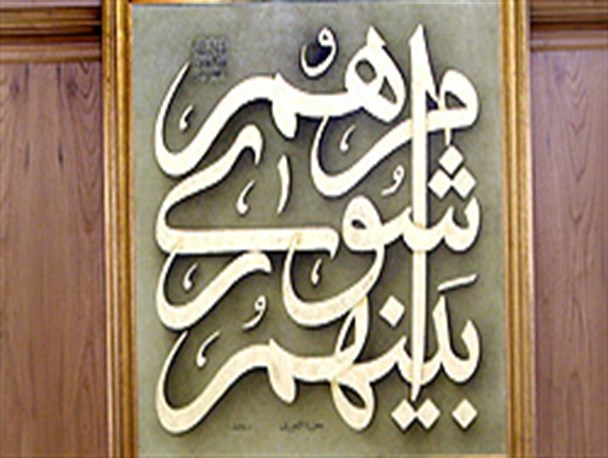 وامرهم
شورى
بينهم